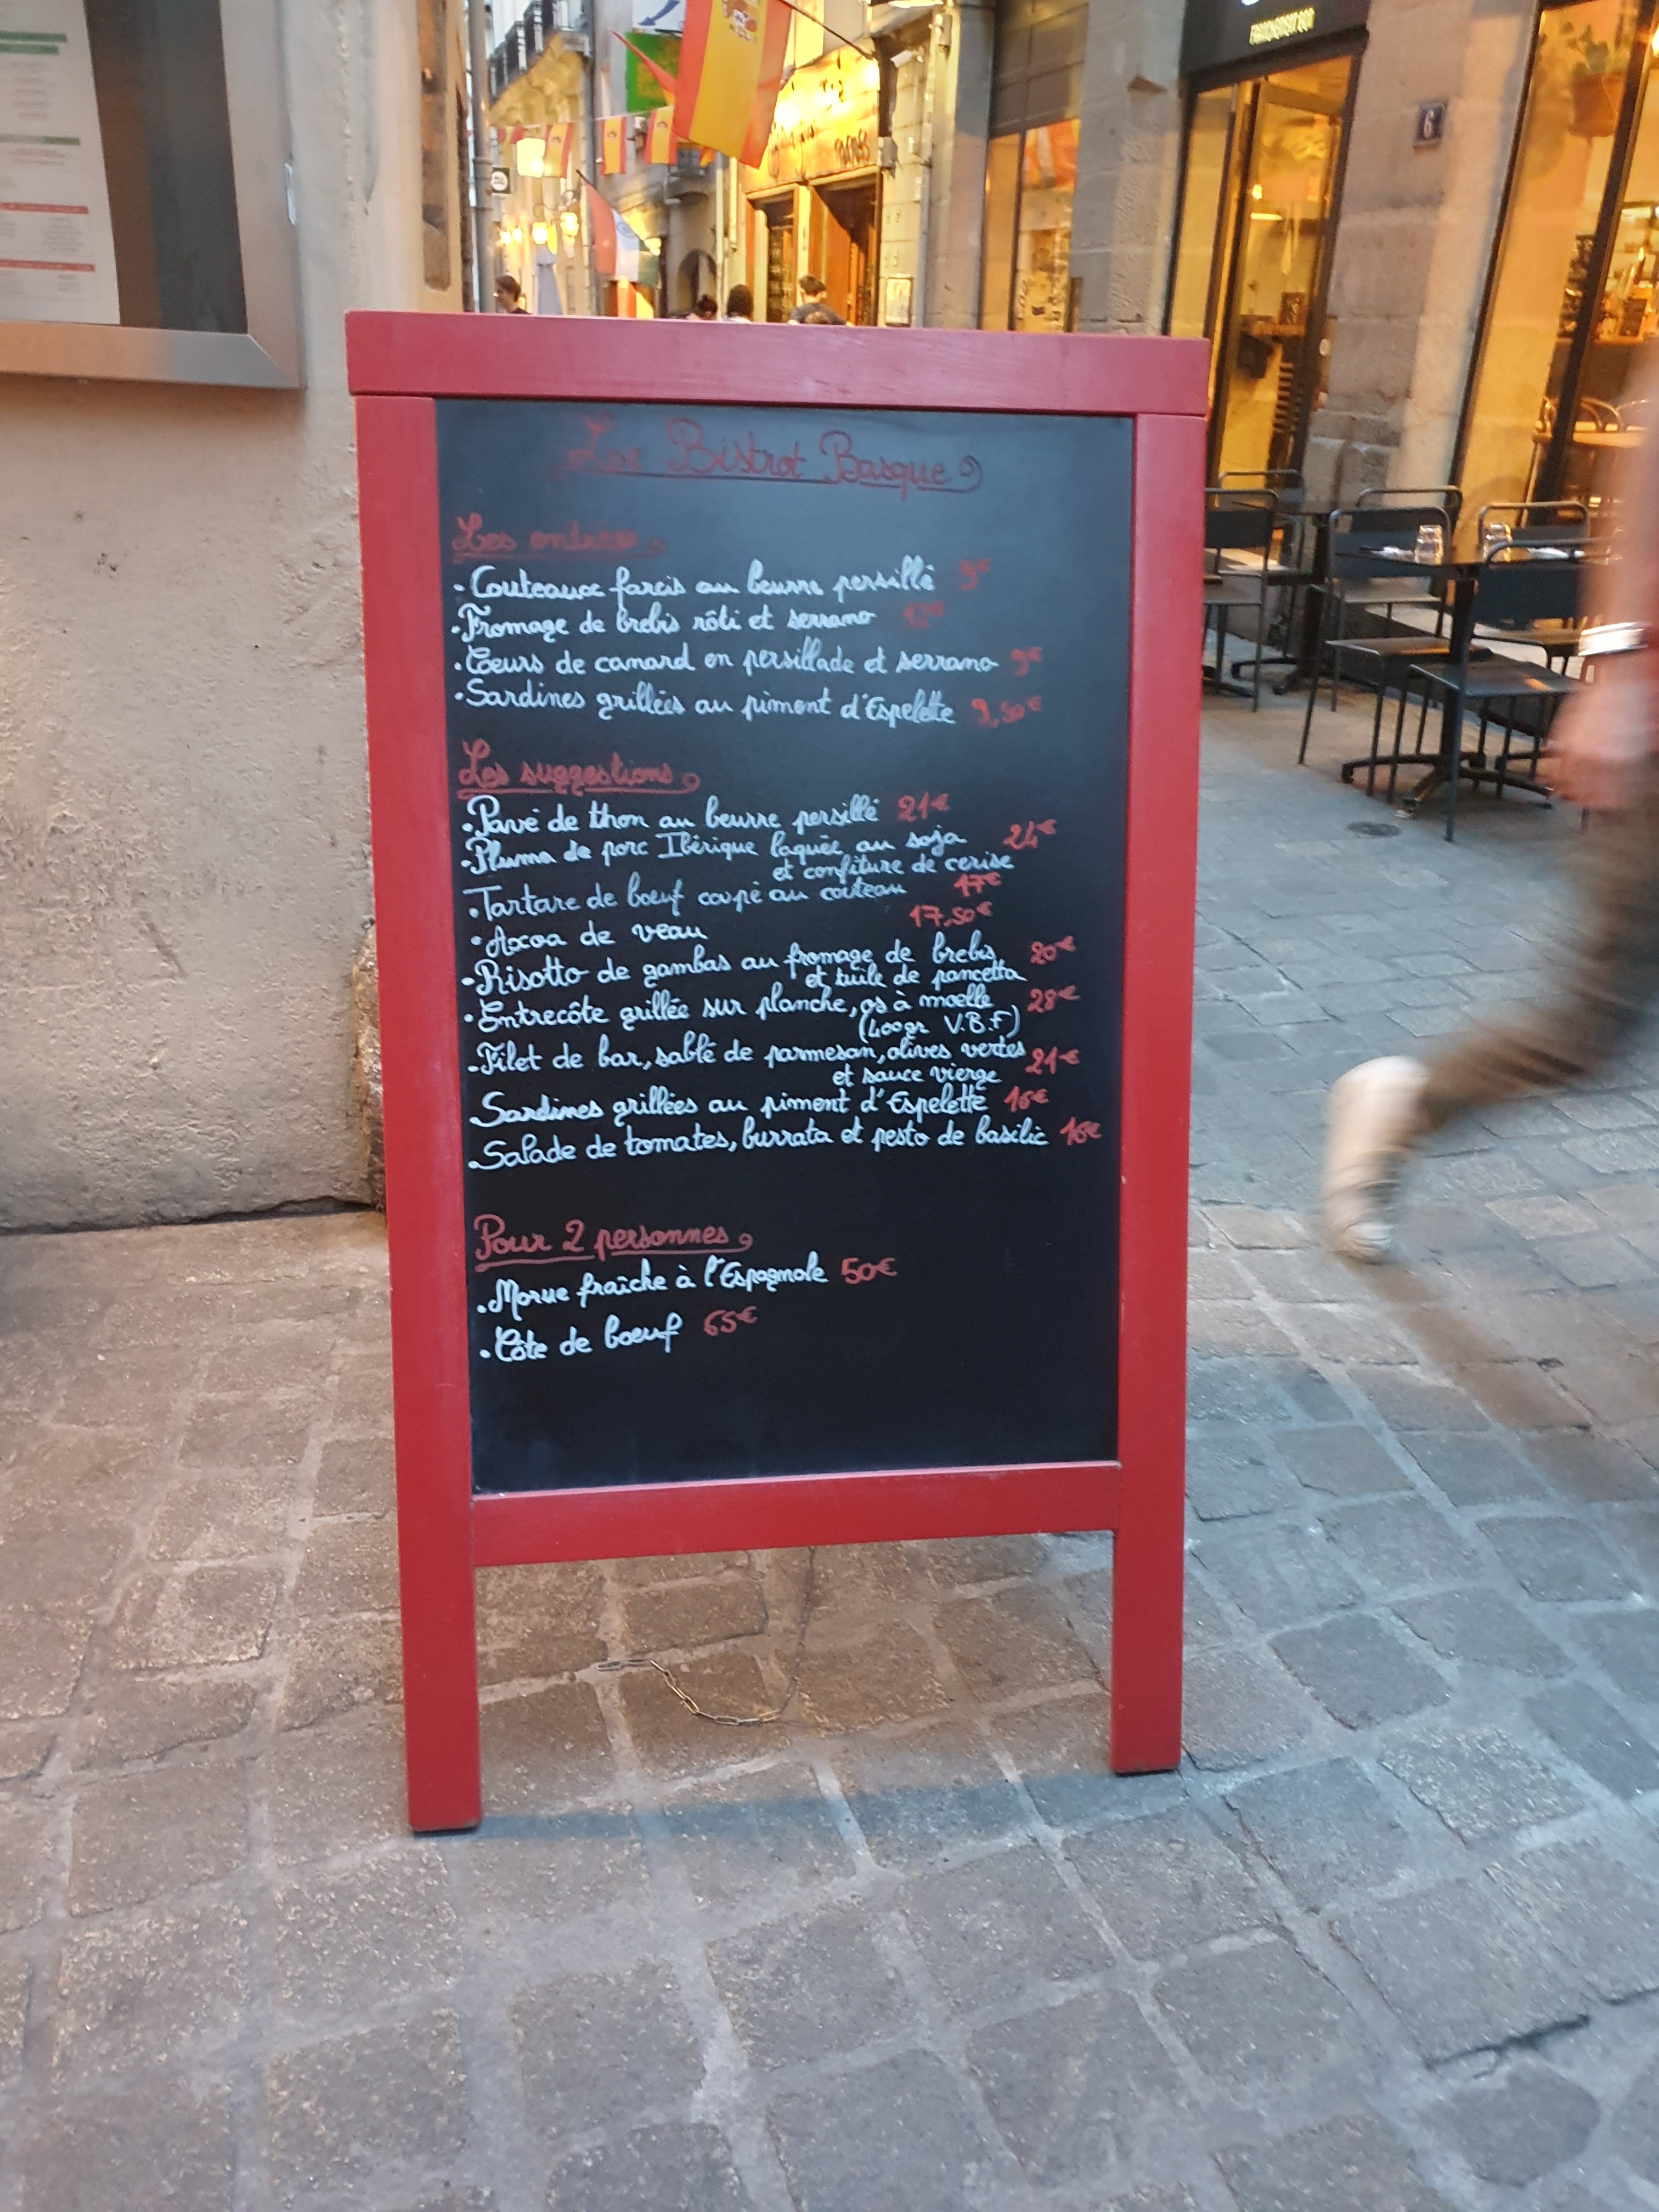 Le Bistrot Basque
Les entrées
• Couteaux farcis au beurre persillé 9€
• Fromage de brebis rôti et serrano
• Coeurs de canard en persillade et serrano 9€
• Sardines grillées au piment d'Espelette 9,50€
Les suggestions
• Pavé de thon au beurre persillé 21€
• Pluma de porc Ibérique laquée au soja 24€
et confiture de cerise
• Tartare de boeuf coupé au couteau 17€
• Axoa de veau 17,50€
• Risotto de gambas au fromage de brebis 20€
et tuile de pancetta
• Entrecôte grillée sur planche, os à moelle 28€
(400gr V.B.F)
• Filet de bar, sablé de parmesan, olives vertes 21€
et sauce vierge
• Sardines grillées au piment d'Espelette 16€
• Salade de tomates, burrata et pesto de basilic 16€
Pour 2 personnes
• Morue fraîche à l'Espagnole 50€
• Côte de boeuf 65€
6